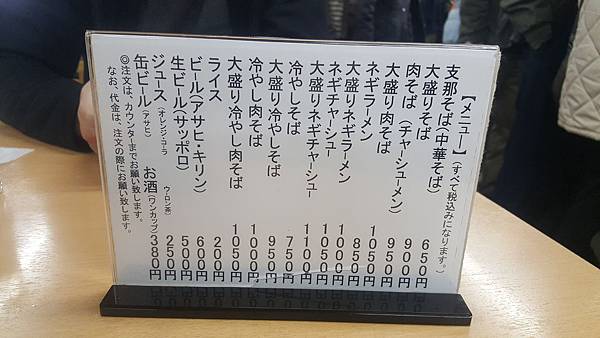 【メニュー】(すべて税込みになります。)
支那そば(中華そば) 650円
大盛りそば 900円
肉そば (チャーシューメン) 950円
大盛り肉そば 1050円
ネギラーメン 850円
大盛りネギラーメン 1000円
ネギチャーシュー 1050円
大盛りネギチャーシュー 1100円
冷やしそば 750円
大盛り冷やしそば 950円
冷やし肉そば 1000円
大盛り冷やし肉そば 1050円
ライス 200円
ビール(アサヒ・キリン) 600円
生ビール(サッポロ) 500円
ジュース (オレンジ・コーラ ウーロン茶) 250円
缶ビール (アサヒ) お酒(ワンカップ) 380円
◎注文は、カウンターまでお願い致します。
なお、代金は、注文の際にお願い致します。